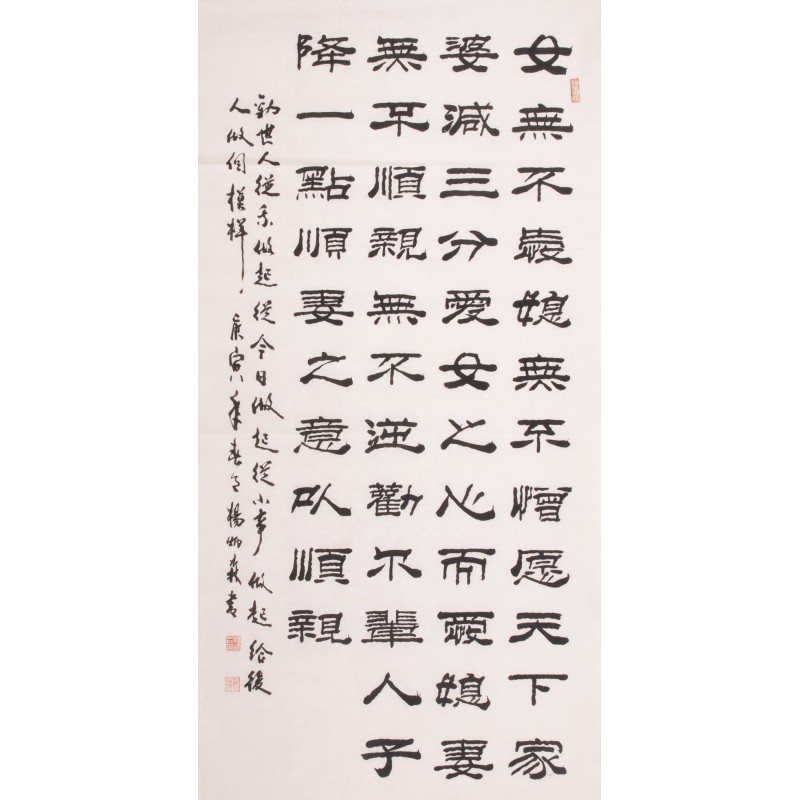 女無不愛媳無不憎愿天下家
婆減三分愛女之心而愛媳妻
無不順親無不逆勸尔輩人子
降一點順妻之意以順親
勸世人從我做起從今日做起從小事做起給後
人做個模樣，庚寅年春月楊炳森書